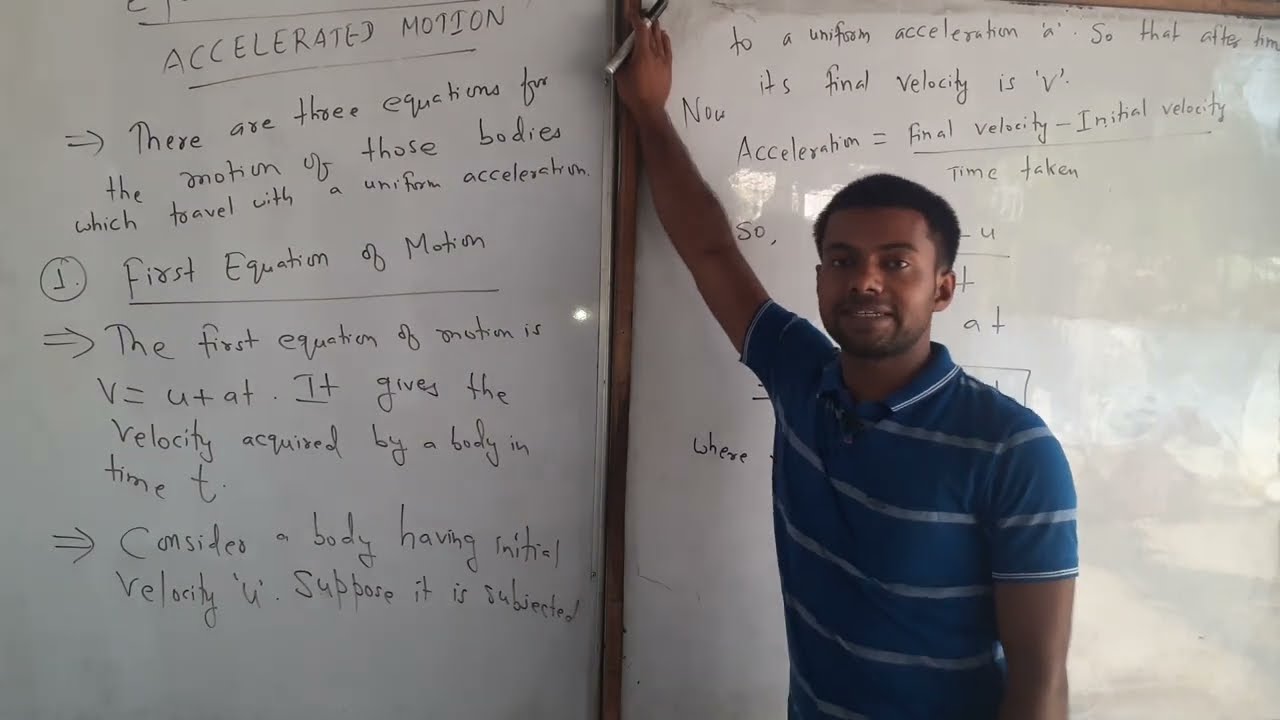 ACCELERATED MOTION
⇒ There are three equations for
the motion of those bodies
which travel with a uniform acceleration.
1. First Equation of Motion
⇒ The first equation of motion is
V = u + at. It gives the
Velocity acquired by a body in
time t.
⇒ Consider a body having initial
Velocity 'u'. Suppose it is subjected
to a uniform acceleration 'a'. So that after time
its final velocity is 'V'.
Now
Acceleration = Final velocity - Initial velocity
Time taken
So, - u
t
at
where